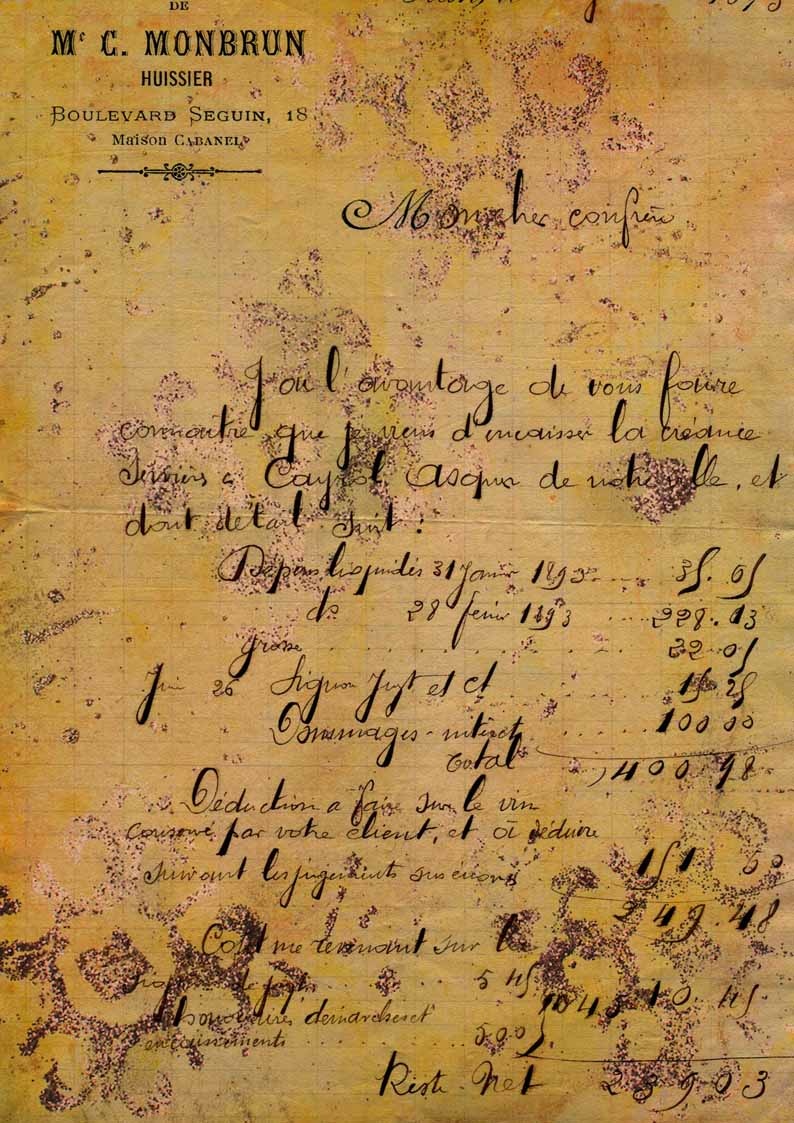 DE
Me C. MONBRUN
HUISSIER
BOULEVARD SEGUIN, 18
Maison CABANEL
Mon cher confrère
J'ai l'avantage de vous faire
connaitre que je viens d'encaisser la créance
Cayrol de notre ville, et
dont détail suit :
Dépens liquidés 31 Janvier 1893 35.05
do 28 février 1893 228.13
grosse 22.05
Juin 26 Signon Jugt et ct 15 25
Dommages-intéret 100 00
total 400 98
Déduction a faire sur le vin
consomé par votre client, et à déduire
suivant les jugements susénoncés 151 50
249.48
Cout me revenant sur la
5 45
honoraires démarches et
encaissements 5 00
10 45 10.45
Reste Net 239 03